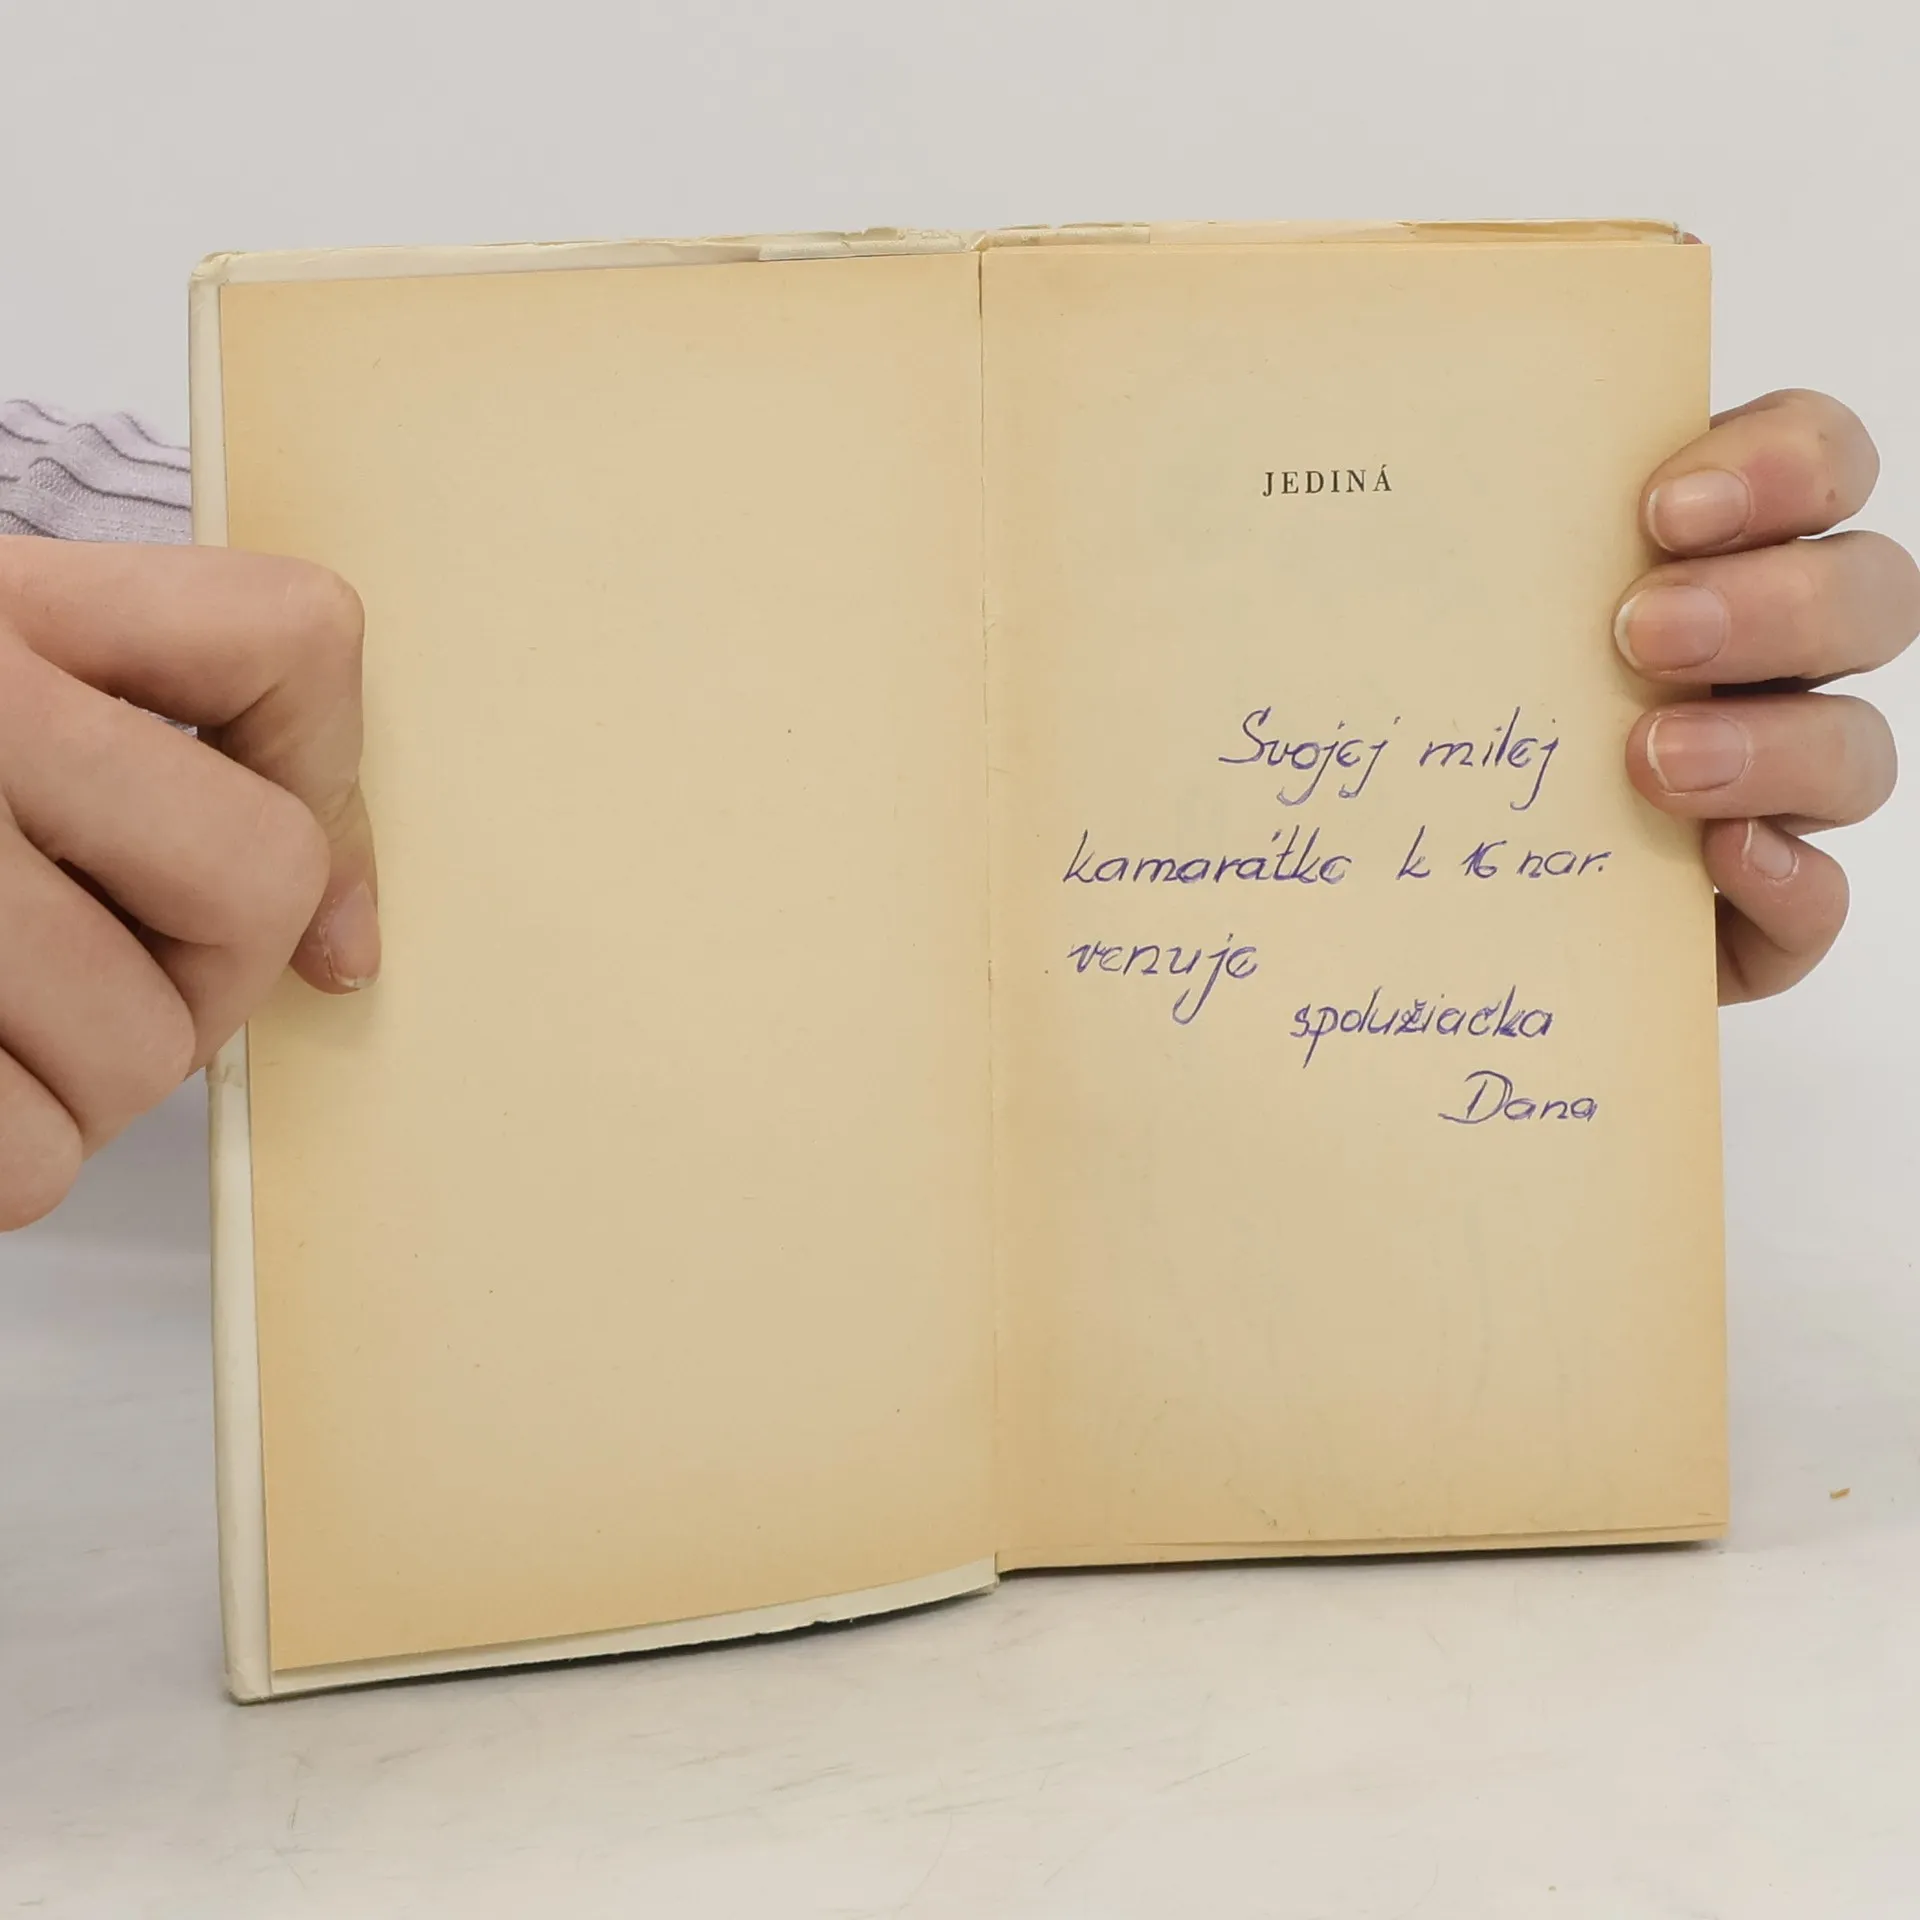 JEDINÁ
Svojej milej
kamarátke k 16 nar.
venuje
spolužiačka
Dana